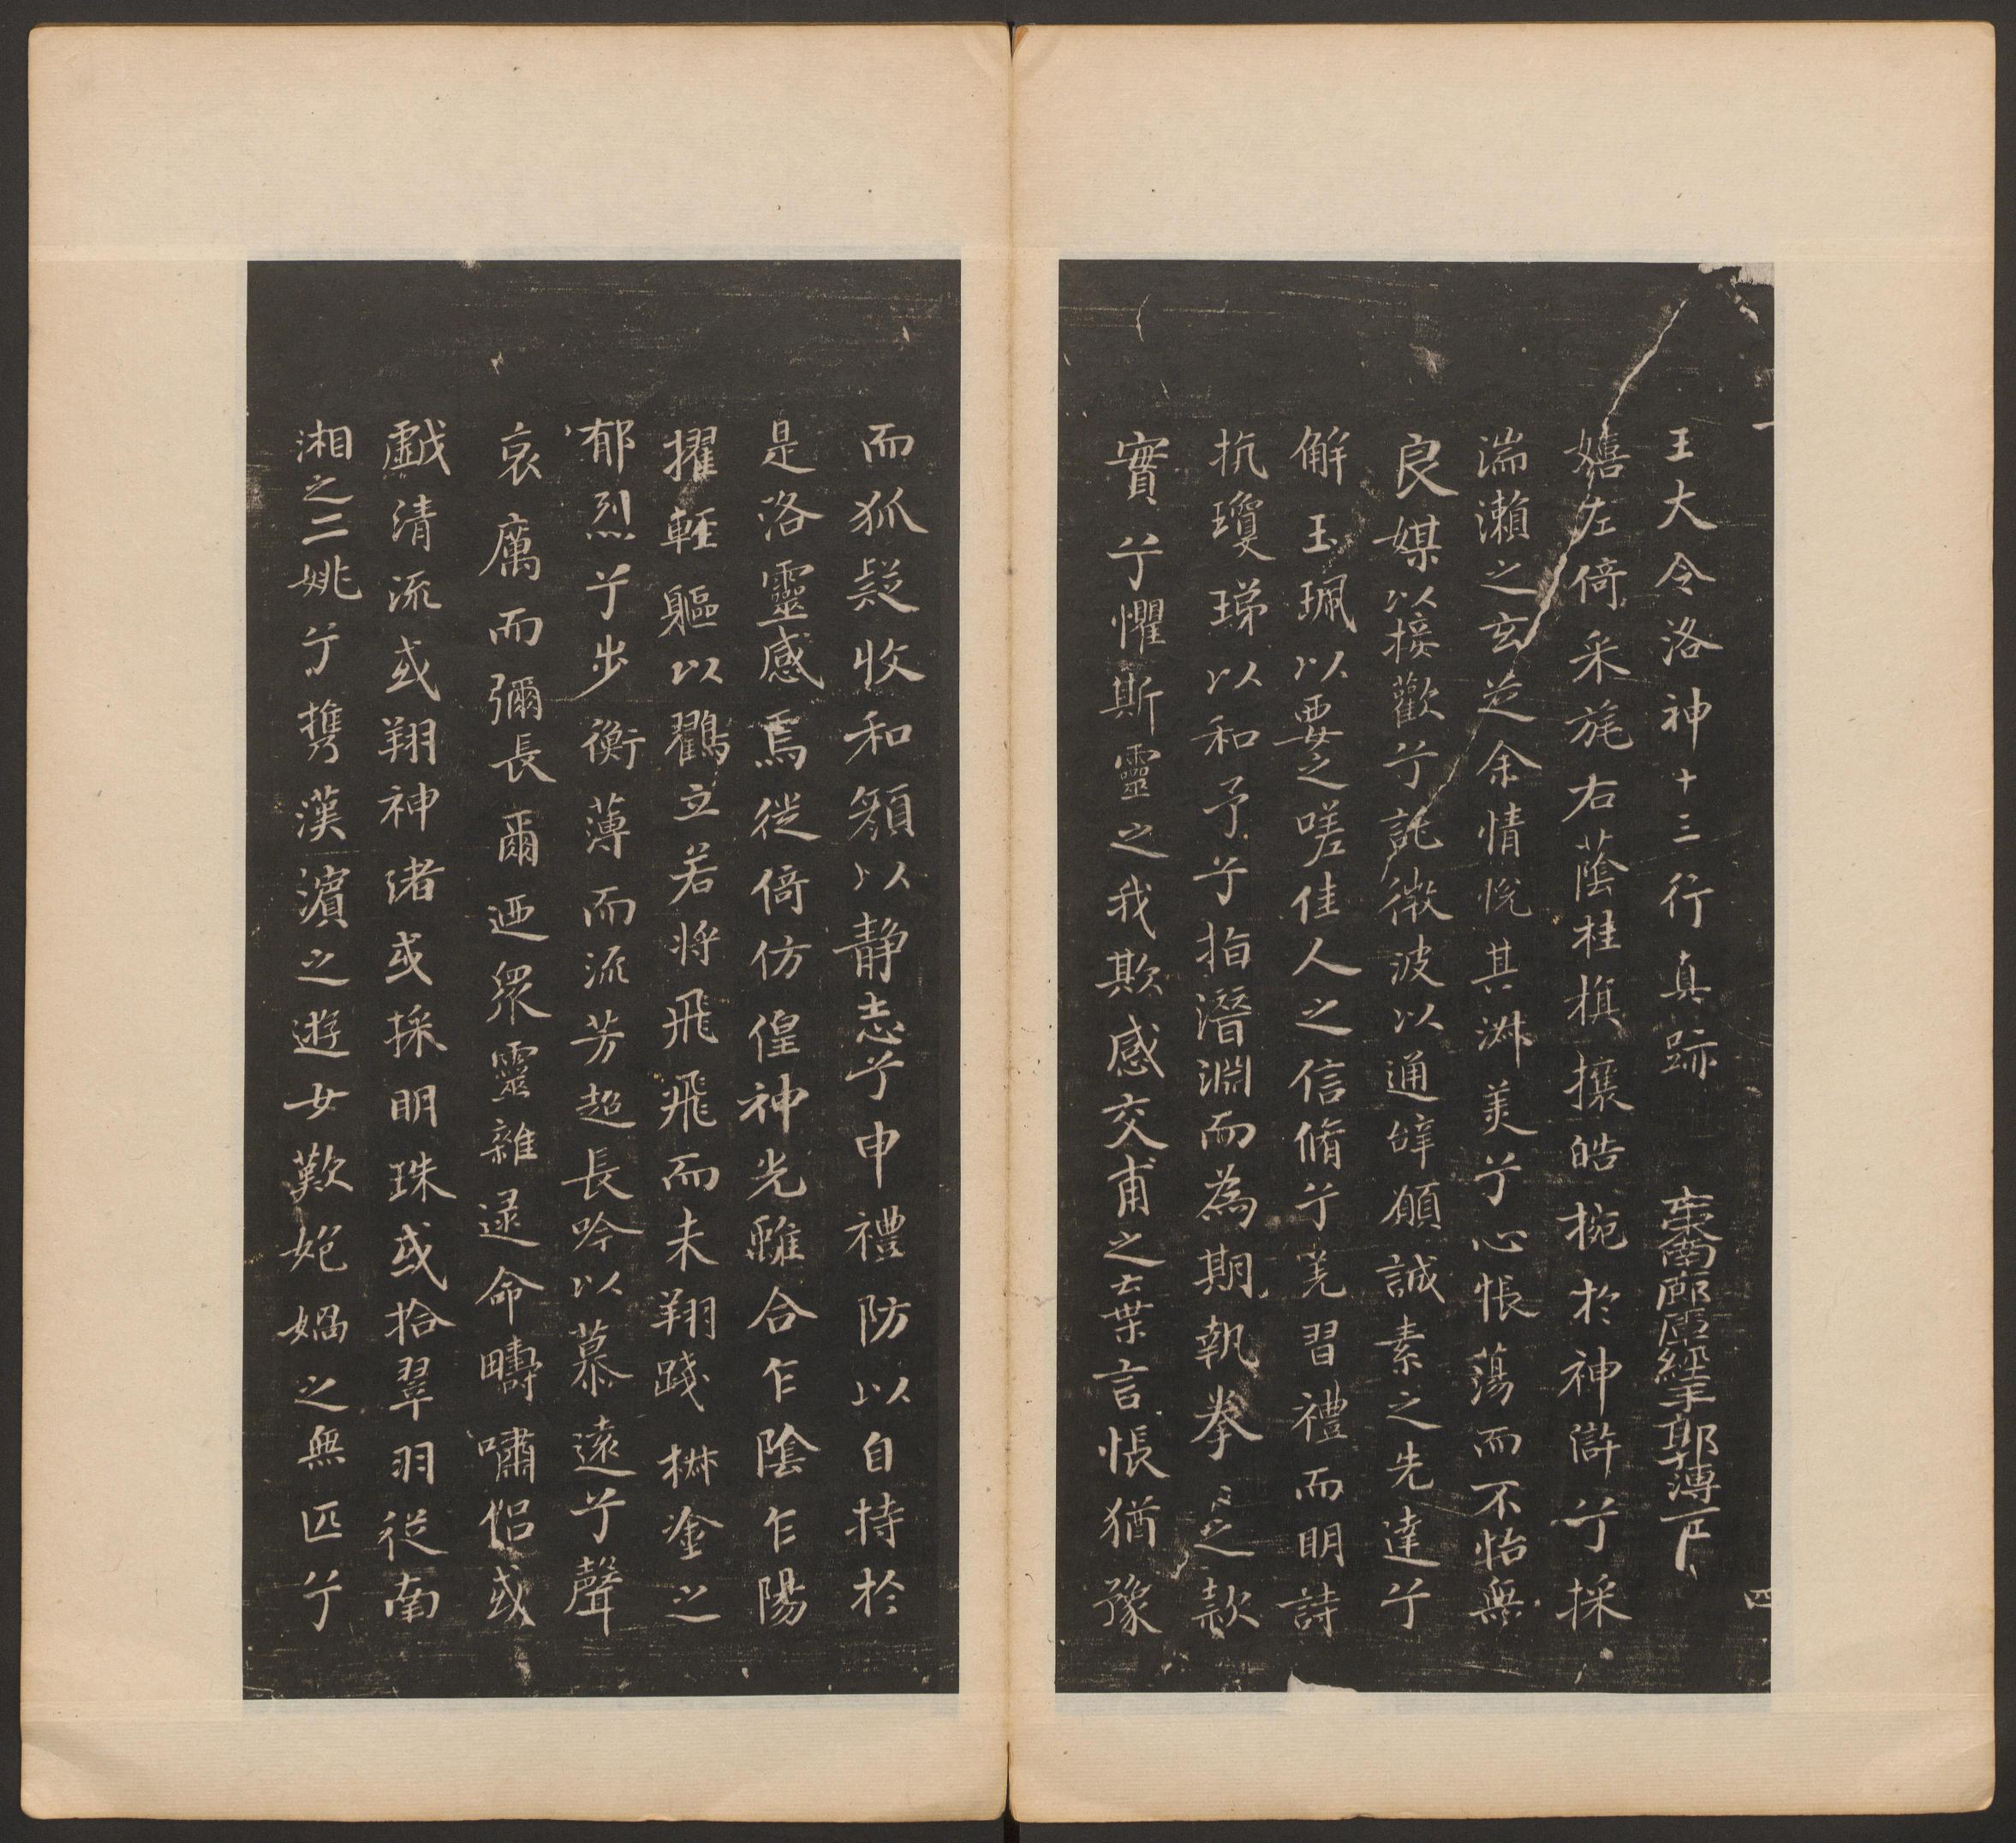 王大令洛神十三行真跡
嬉左倚采旄右蔭桂旗攘皓捥於神滸兮採
湍瀨之玄芝余情悅其淋美兮心悵蕩而不怡無
良媒以接歡兮託微波以通辭願誠素之先達兮
解玉珮以要之嗟佳人之信脩兮羌習禮而明詩
抗瓊珶以和予兮指潛淵而為期執拳〻之款
實兮懼斯靈之我欺感交甫之棄言悵猶豫
而狐疑收和顏以静志兮申禮防以自持於
是洛靈感焉徙倚仿偟神光離合乍陰乍陽
擢輕軀以鸖立若將飛飛而未翔踐椒塗之
郁烈兮步衡薄而流芳超長吟以慕遠兮聲
哀厲而彌長爾迺眾靈雜遝命疇嘯侶或
戲清流或翔神渚或採明珠或拾翠羽從南
湘之二姚兮携漢濵之遊女歎妑媧之無匹兮
四